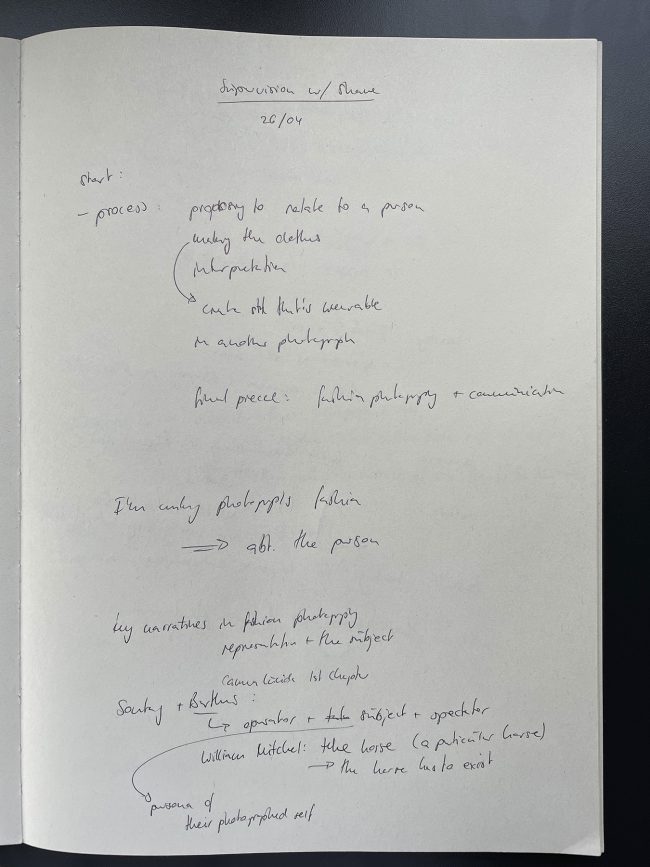 Supervision w/ Shane
26/04
start:
- process: proposing to relate to a person
making the clothes
interpretation
create sth that's wearable
in another photograph
final piece: fashion photography + communication
I'm making photographs fashion
abt. the person
key narratives in fashion photography
representation + the subject
Camera Lucida 1st chapter
Sontag + Barthes:
operator + subject + spectator
William Mitchel: the horse (a particular horse)
the horse has to exist
persona of
their photographed self